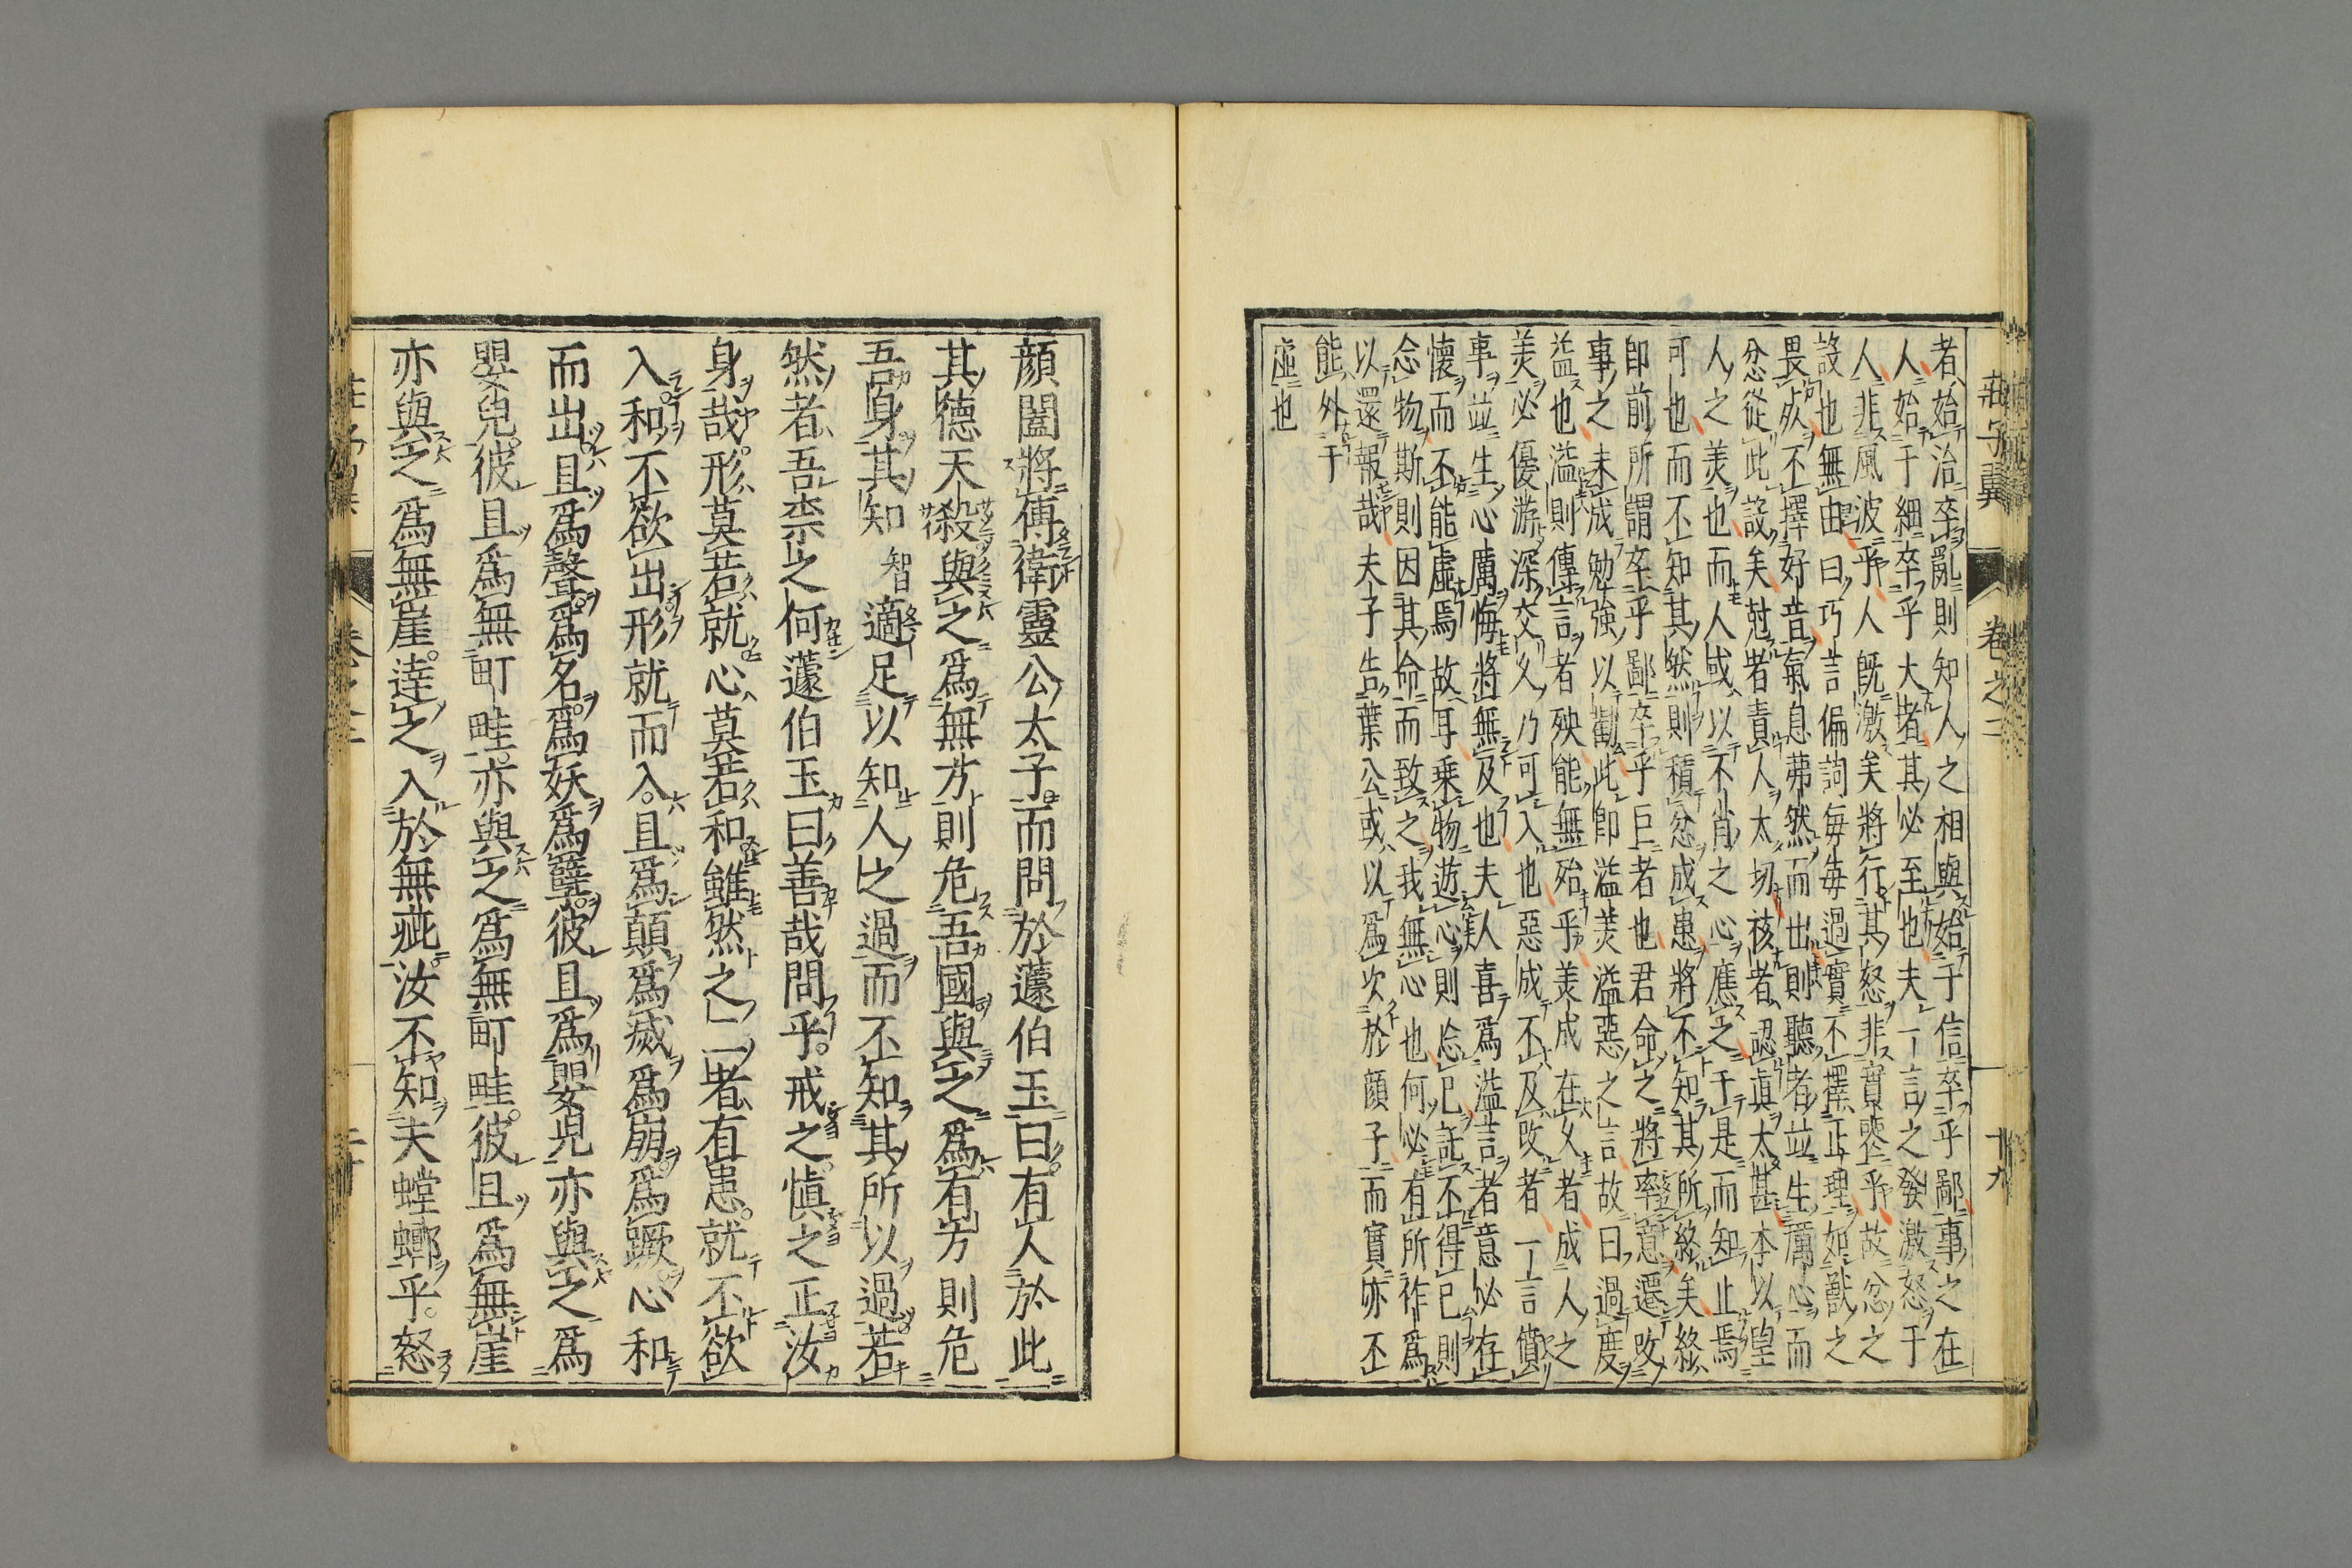 莊子翼 卷之二 十九
者始治卒亂則知人之相與始于信卒乎鄙事之在
人始于細卒乎大者其必至也夫一言之發激怒于
人非風波乎人既激矣將行其怒非實喪乎故忿之
設也無由曰巧言偏詞每每過實不擇正理如獸之
畏死不擇好音氣息茀然而出則聽者並生厲心而
忿從此設矣尅者責人太切核者認眞太甚本以望
人之美也而人或以不肖之心應之于是而知止焉
可也而不知其然則積忿成患將不知其所終矣終
即前所謂卒乎鄙卒乎巨者也君命之將率意還改
事之未成勉強以勸此卽溢美溢惡之言故曰過度
益也溢則傳言者殃能無殆乎美成在久者成人之
美必優游深交久乃可入也惡成不及改者一言僨
事並生心厲悔將無及也夫人喜爲溢言者意必存
懷而不能虛焉故耳乗物遊心則忘已託不得已則
念物斯則因其命而致之我無心也何必有所祚爲
以還報哉夫子告葉公或以爲次於顔子而實亦不
能外于
虛也
顔闔將傅衛靈公太子而問於蘧伯玉曰有人於此
其德天殺與之爲無方則危吾國與之爲有方則危
吾身其知智適足以知人之過而不知其所以過若
然者吾柰之何蘧伯玉曰善哉問乎戒之愼之正汝
身哉形莫若就心莫若和雖然之二者有患就不欲
入和不欲出形就而入且爲顛爲滅爲崩爲蹶心和
而出且爲聲爲名爲妖爲孽彼且爲嬰兒亦與之爲
嬰兒彼且爲無町畦亦與之爲無町畦彼且爲無崖
亦與之爲無崖達之入於無疵汝不知夫螳螂乎怒